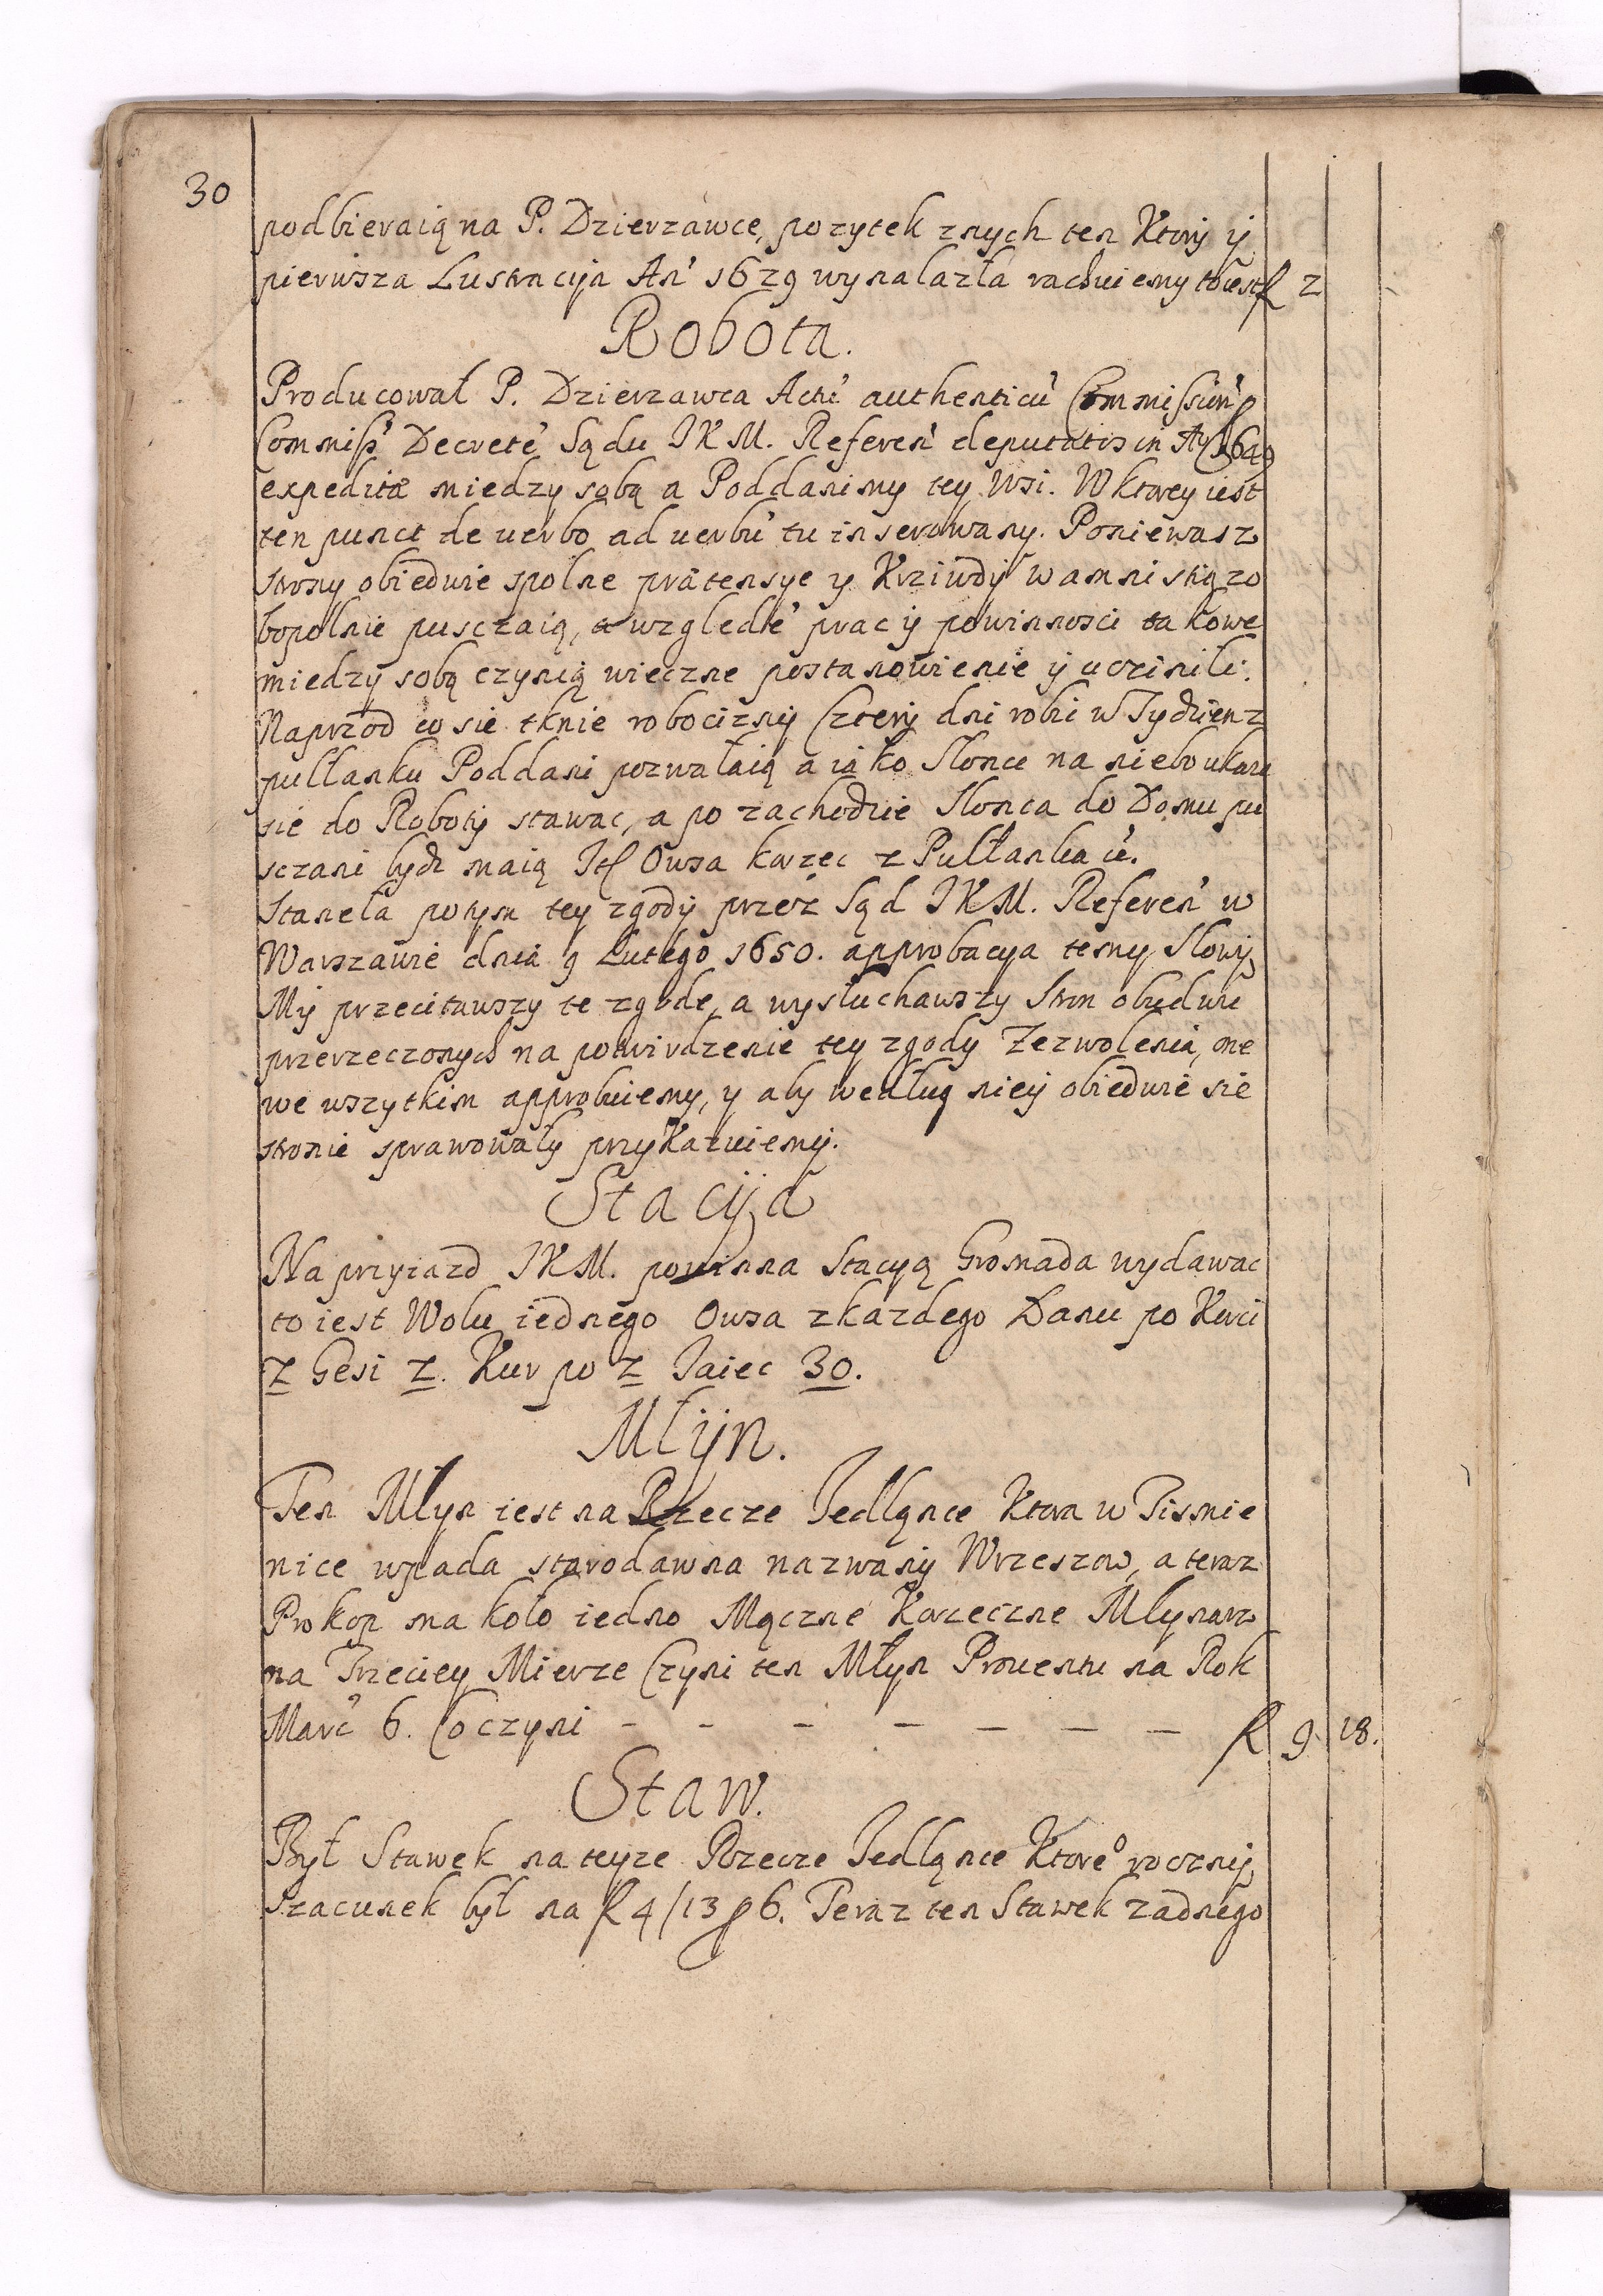 30
podbieraią na P. Dzierzawce, pozytek znych ten Ktory y
pierwsza Lustracyja An' 1629 wynalazła rachuiemy toiest fl 2
Robota.
Producował P. Dzierzawca Actu' authenticu' Commissiun'
Commiss' Decrete' Sądu JKM. Referen' deputatis in A 1649
expeditæ miedzy sobą a Poddanimy tey Wsi. W ktorey iest
ten punct de verbo ad verbu' tu inserowany. Poniewasz
strony obiedwie spolne prætensye y Krziwdy w amnistią zo
bopolnie pusczaią, a wzglede' prac y powinnosci takowe
miedzy sobą czynią wieczne postanowienie y uczinili:
Naprzod co sie tknie robocizny Cztery dni robic w Tydzien z
pułłanku Poddani pozwalaią a iako Słonce na niebo ukaze
sie do Roboty stawac, a po zachodzie Slonca do Domu pu
sczani bydz maią It Owsa korzec z Pułłanka ie'.
Staneła potym tey zgody przez Sąd JKM. Referen' w
Warszawie dnia 9 Lutego 1650. approbacya temy Slowy,
My przecitawszy te zgode, a wysłuchawszy Stron obudwu
przerzeczonych na potwirdzenie tey zgody Zezwolenia, one
we wszytkim approbuiemy, y aby według niey obiedwie sie
stronie sprawowały przykazuiemy.
Stacyja
Na przyiazd JKM. powinna Stacyą Gromada wydawac
to iest Wolu iednego Owsa zkazdego Łanu po Korci
2 Gesi 2. Kur po 2 Jaiec 30.
Młyn.
Ten Młyn iest na Rzecze Jedlącce Ktora w Tismie
nice wpada starodawna nazwany Wrzeszcow, a teraz
Prokop ma koło iedno Mączne Korzeczne Młynarz
na Trzeciey Mierze Czyni ten Młyn Prouentu na Rok
Marc' 6. Co czyni - - - - - - - fl 9. 18.
Staw.
Był Stawek na teyze Rzecze Jedlącce Ktore° roczny
szacunek był na fl 4/13 ꝑ 6. Teraz ten Stawek zadnego